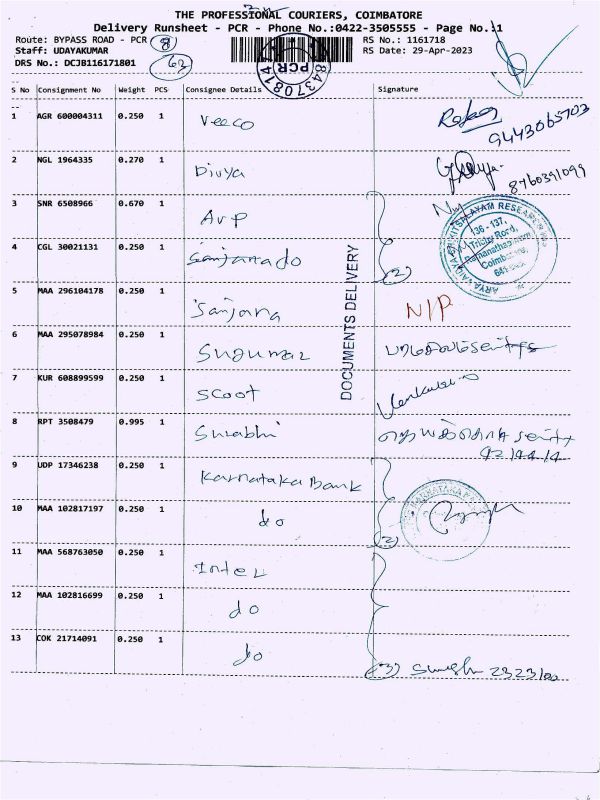 THE PROFESSIONAL COURIERS, COIMBATORE
Delivery Runsheet - PCR - Phone No.:0422-3505555 - Page No.:1
Route: BYPASS ROAD - PCR 8
RS No.: 1161718
Staff: UDAYAKUMAR
RS Date: 29-Apr-2023
DRS No.: DCJB116171801 63
PCR
S No Consignment No Weight PCS Consignee Details Signature
1 AGR 600004311 0.250 1 Veeco 9443065703
2 NGL 1964335 0.270 1 Divya 8760391099
3 SNR 6508966 0.670 1 AVP
4 CGL 30021131 0.250 1 Sanjana do (2)
136 - 137,
Trichy Road,
Ramanathapuram,
Coimbatore,
DOCUMENTS DELIVERY
5 MAA 296104178 0.250 1 Sanjana N/P
6 MAA 295078984 0.250 1 Sugumar
7 KUR 608899599 0.250 1 Scoot
8 RPT 3508479 0.995 1 Surabhi
9 UDP 17346238 0.250 1 Karnataka Bank
10 MAA 102817197 0.250 1 do (2)
11 MAA 568763050 0.250 1 Intel
12 MAA 102816699 0.250 1 do
13 COK 21714091 0.250 1 do (3)